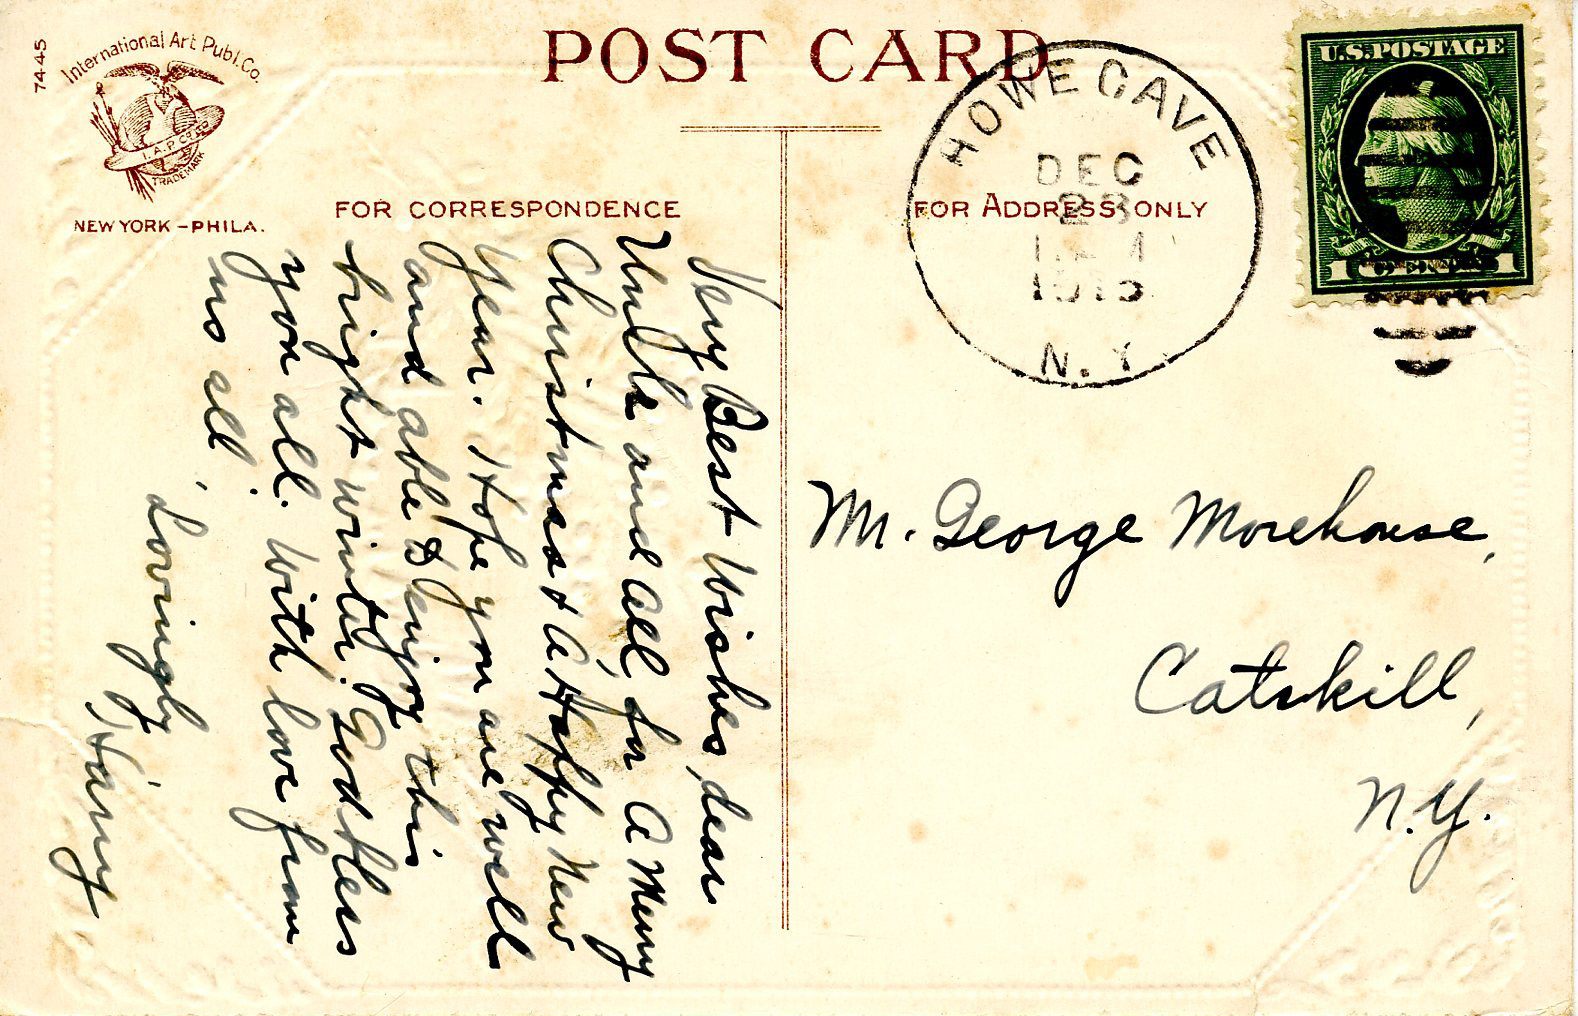 74-4-5
International Art Publ. Co.
I.A.P. Co.
TRADEMARK
NEW YORK – PHILA.
POST CARD
FOR CORRESPONDENCE
FOR ADDRESS ONLY
HOWE CAVE
DEC
23
N.Y.
U.S. POSTAGE
1 CENT 1
Very Best Wishes, dear
Uncle and all for a Merry
Christmas & a Happy New
Year. Hope you are well
and able to enjoy this
bright winter. God bless
you all. With love from
us all,
Lovingly
Harry
Mr. George Morehouse,
Catskill,
N.Y.